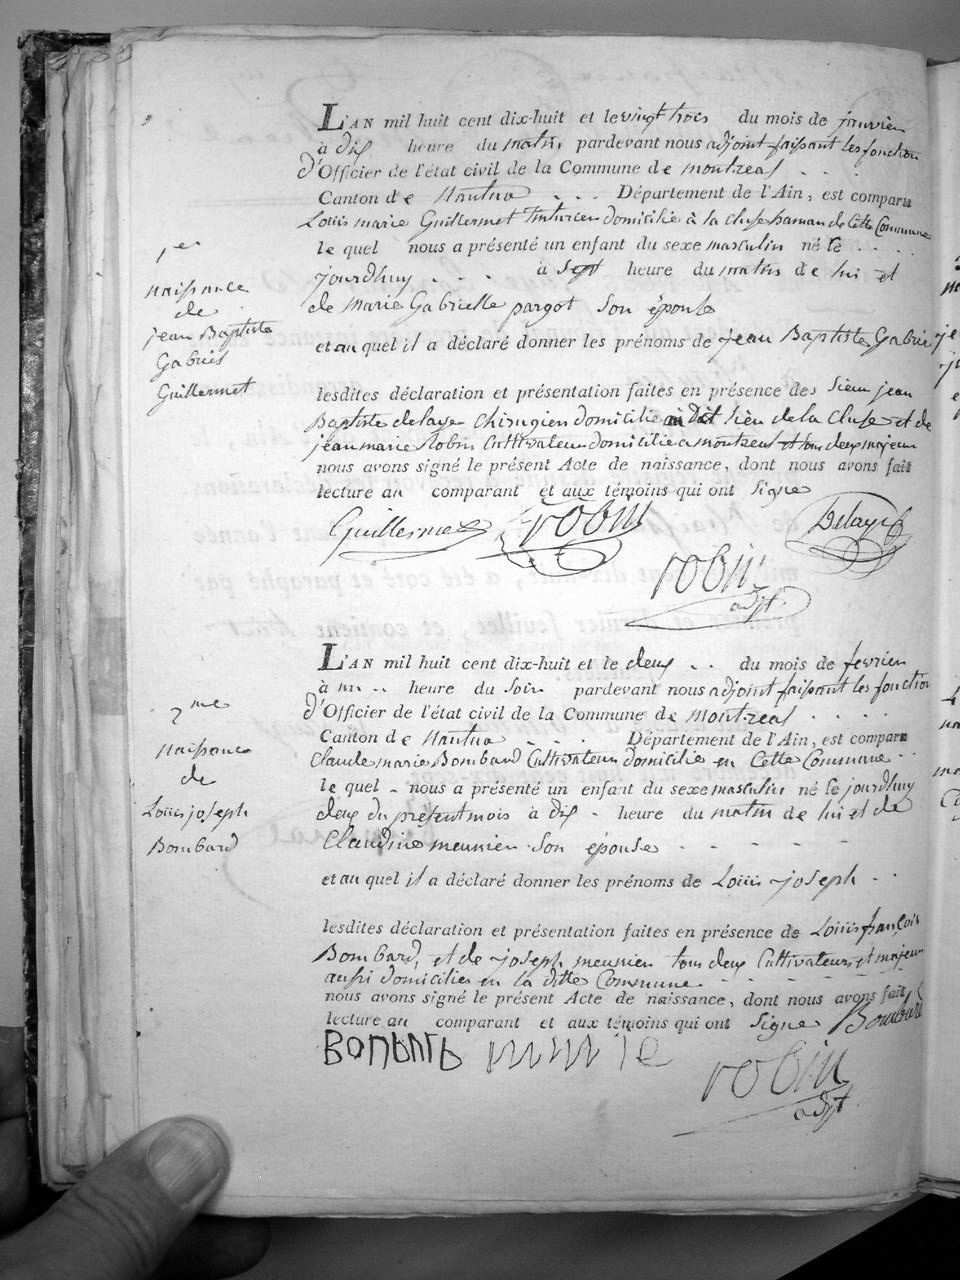 L'AN mil huit cent dix-huit et le vingt trois du mois de janvier
à dix heure du matin pardevant nous adjoint faisant les fonction
d'Officier de l'état civil de la Commune de montreal
Canton de Nantua Département de l'Ain, est comparu
Louis marie Guillermet domicilié à la cluse hamau de Cette Commune
le quel nous a présenté un enfant du sexe masculin né le
jourdhuy à sept heure du matin de lui et
de marie Gabrielle pargot Son épouse
et au quel il a déclaré donner les prénoms de jean Baptiste Gabriel
lesdites déclaration et présentation faites en présence des Sieur jean
Baptiste delaye Chirugien domicilié au dit lieu de la Cluse et de
jean marie Robin Cultivateur domicilié a montreal et tous deux majeur
nous avons signé le présent Acte de naissance, dont nous avons fait
lecture au comparant et aux témoins qui ont Signe
Guillermet robin Delaye
robin
adjt
1er
naissance
de
jean Baptiste
Gabriel
Guillermet
L'AN mil huit cent dix-huit et le deux du mois de fevrier
à un heure du Soir pardevant nous adjoint faisant les fonction
d'Officier de l'état civil de la Commune de montreal
Canton de Nantua Département de l'Ain, est comparu
Claude marie Bombard Cultivateur domicilié en Cette Commune
le quel nous a présenté un enfant du sexe masculin né le jourdhuy
deux du présent mois à dix heure du matin de lui et de
Claudine meunier Son épouse
et au quel il a déclaré donner les prénoms de Louis joseph
lesdites déclaration et présentation faites en présence de Louis françois
Bombard, et de joseph meunier tous deux Cultivateurs et majeur
aussi domicilies en la ditte Commune
nous avons signé le présent Acte de naissance, dont nous avons fait
lecture au comparant et aux témoins qui ont Signe Bombard
robin
adjt
2me
naissance
de
Louis joseph
Bombard